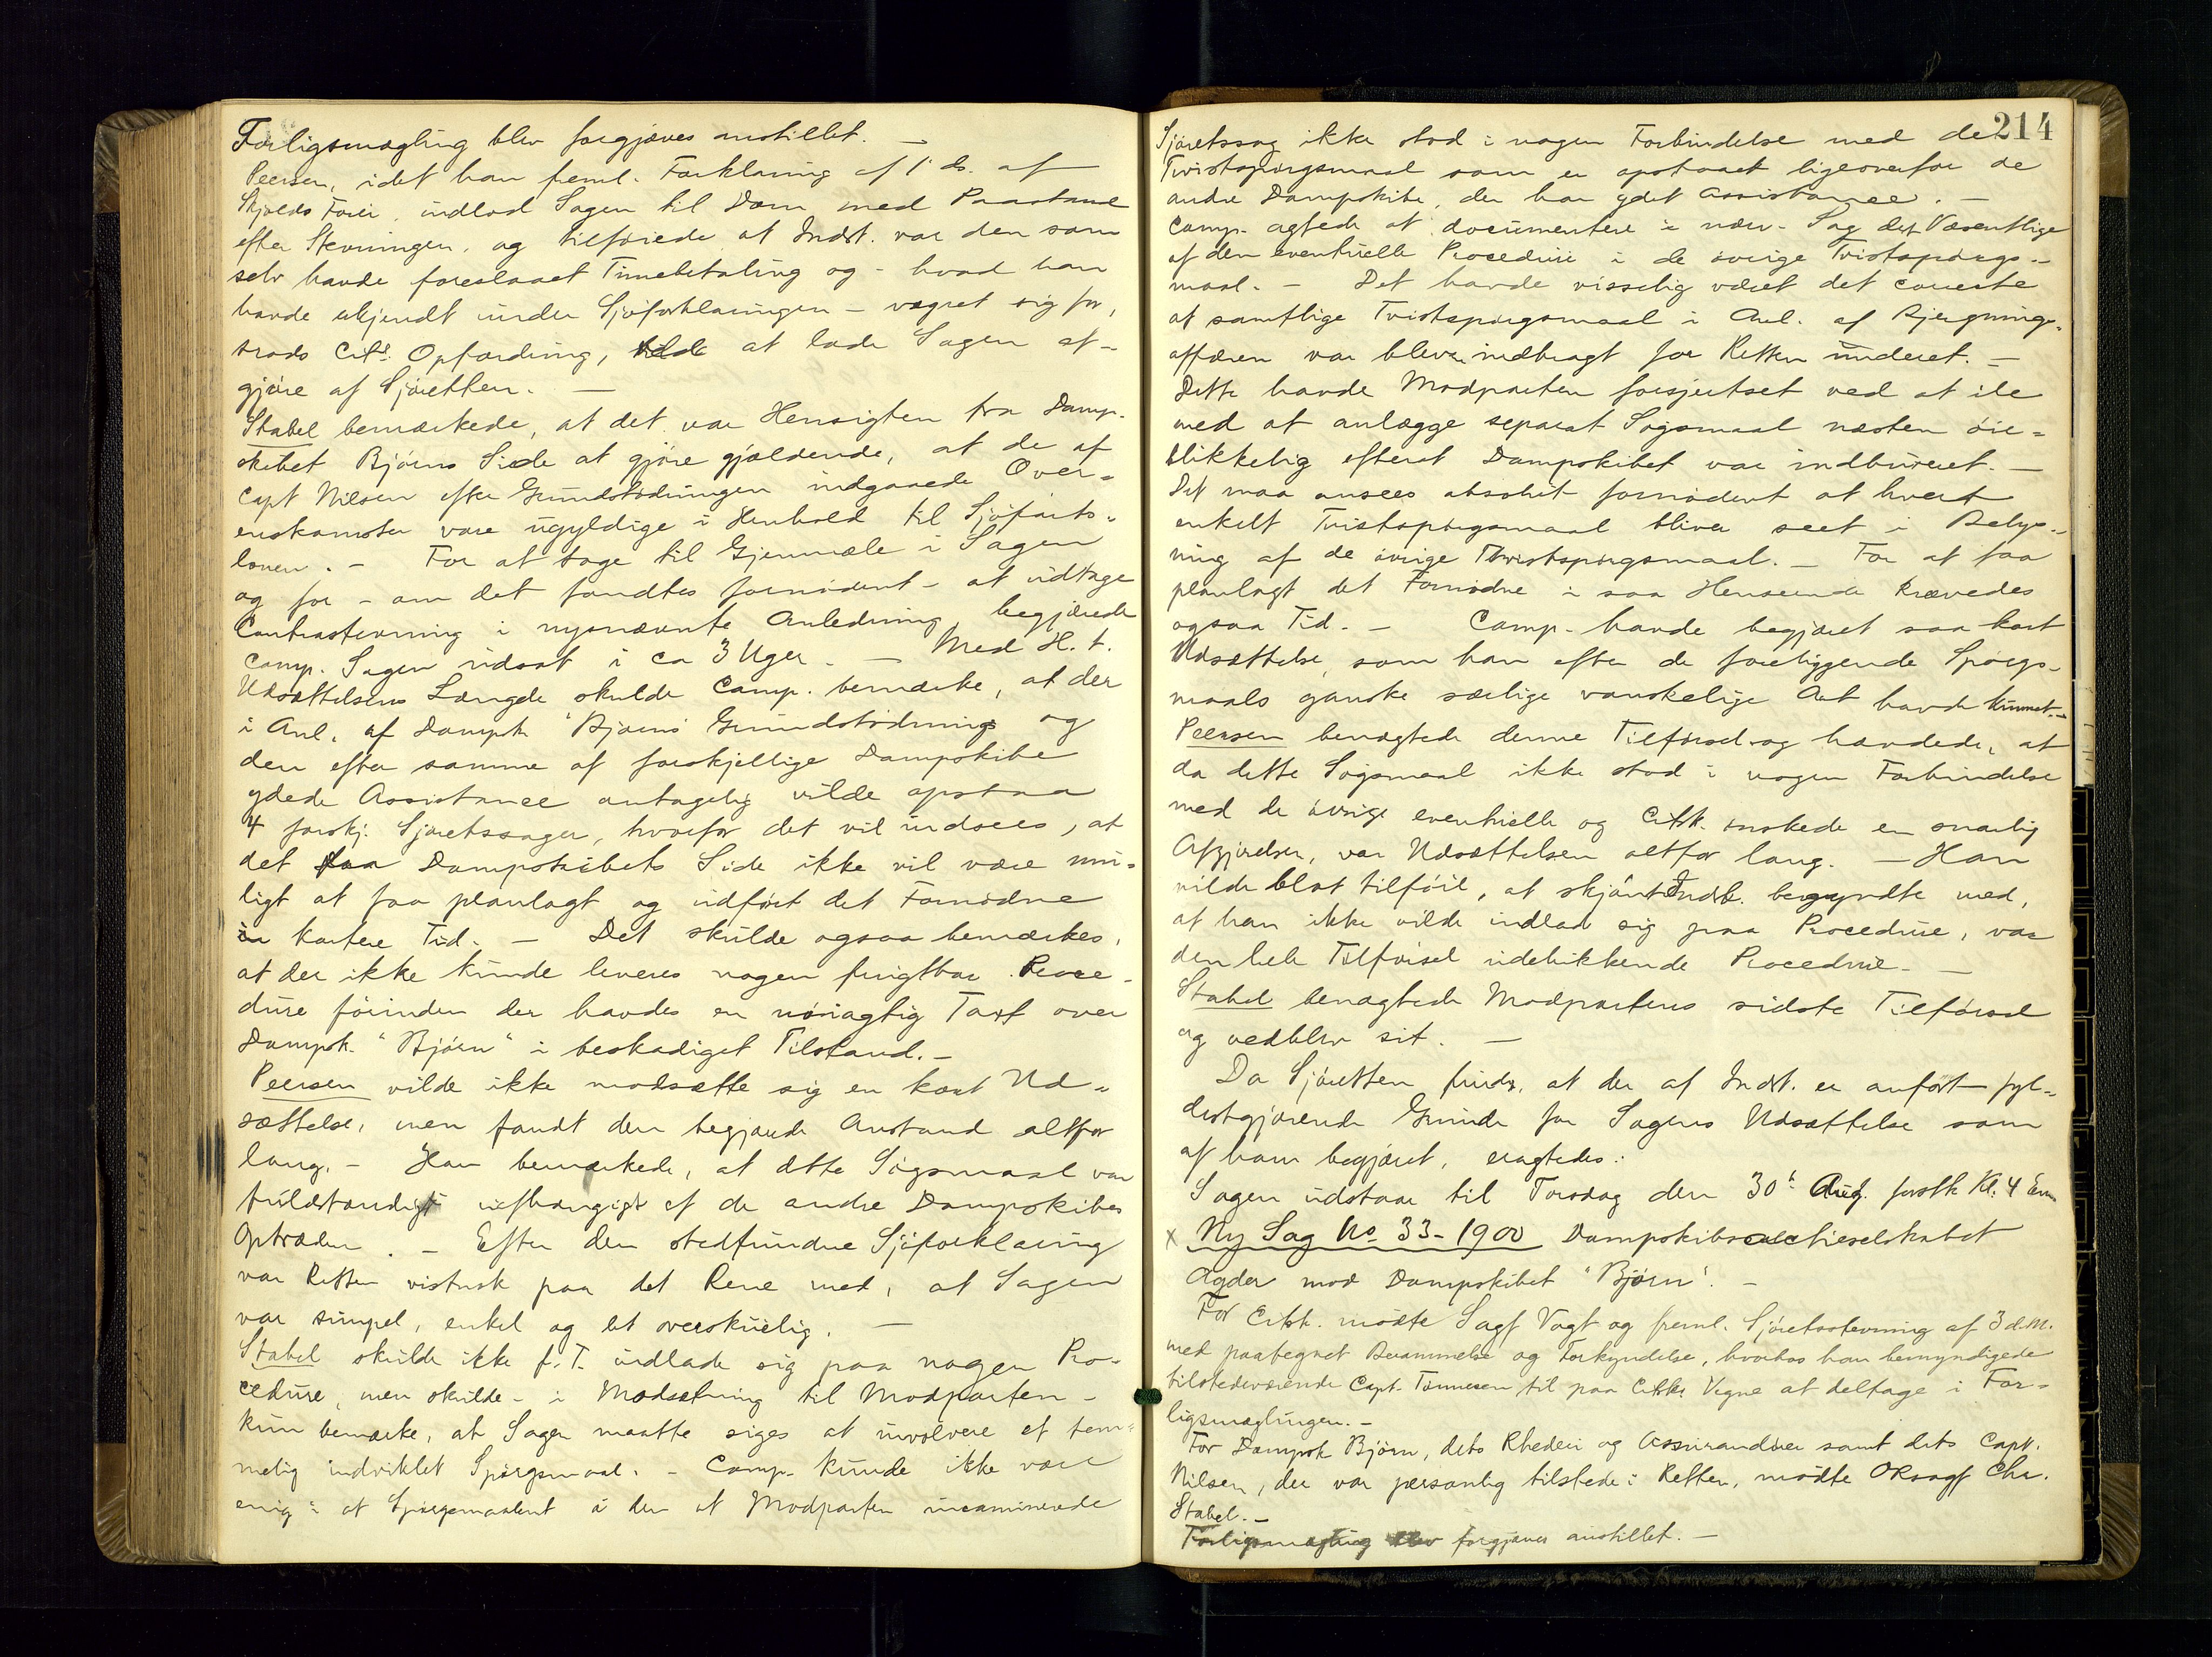 Forligsmægling blev forgjæves anstillet. —
Peersen, idet han freml. Forklaring af 1 ds. af
Skjolds Fører, indlod Sagen til Dom med Paastand
efter Stevningen, og tilførede at Indst. var den som
selv havde foreslaaet Timebetaling og - hvad han
havde erkjendt under Sjøforklaringen - vægret sig for,
trods Cit. Opfordring, at lade Sagen af-
gjøre af Sjøretten. —
Stabel bemærkede, at det var Hensigten fra Damp-
skibet Bjørns Side at gjøre gjældende, at de af
Capt Nilsen efter Grundstødningen indgaaede Over-
enskomster vare ugyldige i Henhold til Sjøfarts-
loven. - For at tage til Gjenmæle i Sagen
og for - om det fandtes fornødent - at udtage
Contrastevning i nysnævnte Anledning begjærede
Comp. Sagen udsat i ca 3 Uger. — Med H. t.
Udsættelsens Længde skulde Comp. bemærke, at der
i Anl. af Dampsk "Bjørns" Grundstødning og
den efter samme af forskjellige Dampskibe
ydede Assistance antagelig vilde opstaa
4 forskj. Sjøretssager, hvorfor det vil indsees, at
det fra Dampskibets Side ikke vil være mu-
ligt at faa planlagt og udført det Fornødne
in kortere Tid. — Det skulde ogsaa bemærkes,
at der ikke kunde leveres nogen frugtbar Proce-
dure førinden der havdes en nøiagtig Taxt over
Dampsk. "Bjørn" i beskadiget Tilstand. -
Peersen vilde ikke modsætte sig en kort Ud-
sættelse, men fandt den begjærede Anstand altfor
lang. - Han bemærkede, at dette Søgsmaal var
fuldstændigt uafhængigt af de andre Dampskibes
Optræden. - Efter den stedfundne Sjøforklaring
var Retten vistnok paa det Rene med, at Sagen
var simpel, enkel og let overskuelig. —
Stabel skulde ikke f. T. indlade sig paa nogen Pro-
cedure, men skulde - i Modsætning til Modparten -
kun bemærke, at Sagen maatte siges at involvere et tem-
melig indviklet Spørgsmaal. - Comp. kunde ikke være
enig i at Spørgsmaalet i den af Modparten incaminerede
214
Sjøretssag ikke stod i nogen Forbindelse med de
Tvistspørgsmaal som er opstaaet ligeoverfor de
andre Dampskibe, der har ydet Assistance. —
Comp. agtede at documentere i nærv. Sag det Væsentlige
af den eventuelle Procedure i de øvrige Tvistspørgs-
maal. - Det havde visselig været det correcte
at samtlige Tvistspørgsmaal i Anl. af Bjergnings-
affæren var bleven indbragt for Retten underet. —
Dette havde Modparten forsjertset ved at ile
med at anlægge separat Søgsmaal næsten øie-
blikkelig efterat Dampskibet var indbugseret. —
Det maa ansees absolut fornødent at hvert
enkelt Tvistspørgsmaal bliver seet i Belys-
ning af de øvrige Tvistspørgsmaal. — For at faa
planlagt det Fornødne i saa Henseende krævedes
ogsaa Tid. - Comp. havde begjæret saa kort
Udsættelse, som han efter de foreliggende Spørgs-
maals ganske særlige vanskelige Art havde kunnet. -
Peersen benægtede denne Tilførsel og hævdede, at
da dette Søgsmaal ikke stod i nogen Forbindelse
med de øvrige eventuelle og Citsk. ønskede en snarlig
Afgjørelse, var Udsættelsen altfor lang. — Han
vilde blot tilføie, at skjønt Indst. begyndte med,
at han ikke vilde indlade sig paa Procedure, var
den hele Tilførsel udelukkende Procedure. —
Stabel benægtede Modpartens sidste Tilførsel
og vedblev sit. —
Da Sjøretten finder, at der af Indst. er anført fyl-
destgjørende Grunde for Sagens Udsættelse som
af ham begjæret, eragtedes:
Sagen udstaar til Torsdag den 30t Aug. førstk Kl. 4 Em
x Ny Sag No 33-1900 Dampskibsactieselskabet
Agder mod Dampskibet "Bjørn". -
For Citsk. mødte Sagf Vogt og freml. Sjøretsstevning af 3 d.M.
med paategnet Berammelse og Forkyndelse, hvorhos han bemyndigede
tilstedeværende Capt. Tønnesen til paa Citsks Vegne at deltage i For-
ligsmæglingen. -
For Dampsk Bjørn, dets Rhederi og Assurandører samt dets Capt.
Nilsen, der var personlig tilstede i Retten, mødte ORsagf Chr.
Stabel. -
Forligsmægling blev forgjæves anstillet. —